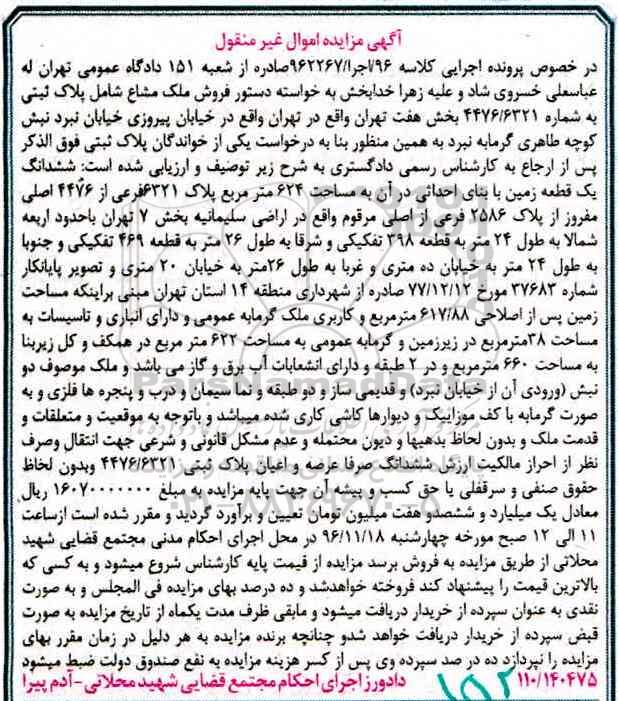 آگهی مزایده اموال غیر منقول
در خصوص پرونده اجرایی کلاسه ۹۶/اجرا/۹۶۲۲۶۷صادره از شعبه ۱۵۱ دادگاه عمومی تهران له
عباسعلی خسروی شاد و علیه زهرا خدابخش به خواسته دستور فروش ملک مشاع شامل پلاک ثبتی
به شماره ۴۴۷۶/۶۳۲۱ بخش هفت تهران واقع در تهران واقع در خیابان پیروزی خیابان نبرد نبش
کوچه طاهری گرمابه نبرد به همین منظور بنا به درخواست یکی از خواندگان پلاک ثبتی فوق الذکر
پس از ارجاع به کارشناس رسمی دادگستری به شرح زیر توصیف و ارزیابی شده است: ششدانگ
یک قطعه زمین با بنای احداثی در آن به مساحت ۶۲۴ متر مربع پلاک ۶۳۲۱فرعی از ۴۴۷۶ اصلی
مفروز از پلاک ۲۵۸۶ فرعی از اصلی مرقوم واقع در اراضی سلیمانیه بخش ۷ تهران باحدود اربعه
شمالا به طول ۲۴ متر به قطعه ۳۹۸ تفکیکی و شرقا به طول ۲۶ متر به قطعه ۴۶۹ تفکیکی و جنوبا
به طول ۲۴ متر به خیابان ده متری و غربا به طول ۲۶متر به خیابان ۲۰ متری و تصویر پایانکار
شماره ۳۷۶۸۳ مورخ ۷۷/۱۲/۱۲ صادره از شهرداری منطقه ۱۴ استان تهران مبنی براینکه مساحت
زمین پس از اصلاحی ۶۱۷/۸۸ مترمربع و کاربری ملک گرمابه عمومی و دارای انباری و تاسیسات به
مساحت ۳۸مترمربع در زیرزمین و گرمابه عمومی به مساحت ۶۲۲ متر مربع در همکف و کل زیربنا
به مساحت ۶۶۰ مترمربع و در ۲ طبقه و دارای انشعابات آب برق و گاز می باشد و ملک موصوف دو
نبش (ورودی آن از خیابان نبرد) و قدیمی ساز و دو طبقه و نما سیمان و درب و پنجره ها فلزی و به
صورت گرمابه با کف موزاییک و دیوارها کاشی کاری شده میباشد و باتوجه به موقعیت و متعلقات و
قدمت ملک و بدون لحاظ بدهیها و دیون محتمله و عدم مشکل قانونی و شرعی جهت انتقال وصرف
نظر از احراز مالکیت ارزش ششدانگ صرفا عرصه و اعیان پلاک ثبتی ۴۴۷۶/۶۳۲۱ وبدون لحاظ
حقوق صنفی و سرقفلی یا حق کسب و پیشه آن جهت پایه مزایده به مبلغ ۱۶۰۷۰۰۰۰۰۰۰ ریال
معادل یک میلیارد و ششصدو هفت میلیون تومان تعیین و برآورد گردید و مقرر شده است ازساعت
۱۱ الی ۱۲ صبح مورخه چهارشنبه ۹۶/۱۱/۱۸ در محل اجرای احکام مدنی مجتمع قضایی شهید
محلاتی از طریق مزایده به فروش برسد مزایده از قیمت پایه کارشناس شروع میشود و به کسی که
بالاترین قیمت را پیشنهاد کند فروخته خواهدشد و ده درصد بهای مزایده فی المجلس و به صورت
نقدی به عنوان سپرده از خریدار دریافت میشود و مابقی ظرف مدت یکماه از تاریخ مزایده به صورت
قبض سپرده از خریدار دریافت خواهد شدو چنانچه برنده مزایده به هر دلیل در زمان مقرر بهای
مزایده را نپردازد ده در صد سپرده وی پس از کسر هزینه مزایده به نفع صندوق دولت ضبط میشود
۱۱۰/۱۴۰۴۷۵ دادورز اجرای احکام مجتمع قضایی شهید محلاتی -آدم پیرا
ParsNamadData